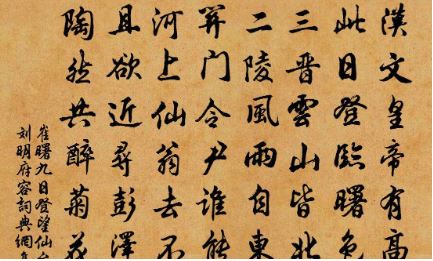 漢文皇帝有高
此日登臨曙色
三晉雲山皆北
二陵風雨自東
關門令尹誰能
河上仙翁去不
且欲近尋彭澤
陶然共醉菊花
崔曙九日登望仙台
刘明府容詞典網